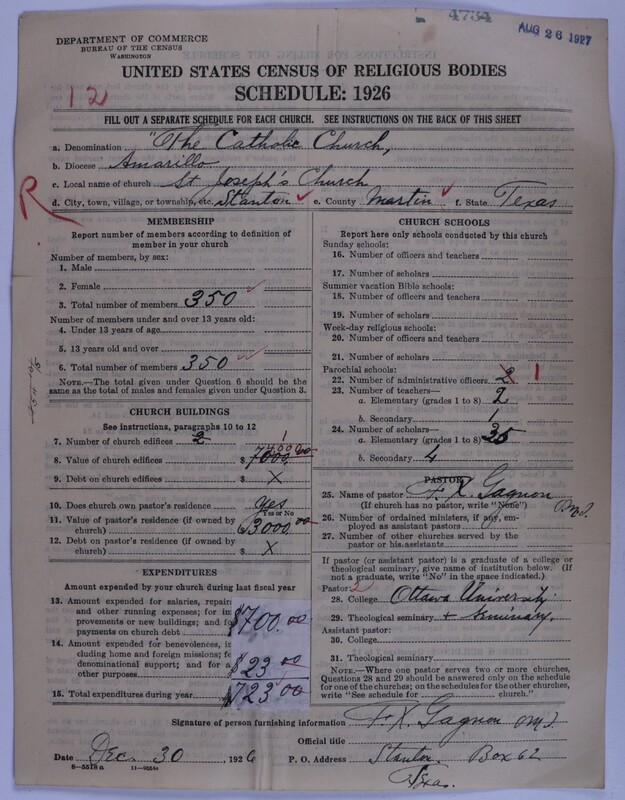 4734
AUG 26 1927
DEPARTMENT OF COMMERCE
BUREAU OF THE CENSUS
WASHINGTON
UNITED STATES CENSUS OF RELIGIOUS BODIES
SCHEDULE: 1926
12
FILL OUT A SEPARATE SCHEDULE FOR EACH CHURCH. SEE INSTRUCTIONS ON THE BACK OF THIS SHEET
a. Denomination "The Catholic Church,
b. Diocese Amarillo
c. Local name of church St Joseph's Church
R
d. City, town, village, or township, etc. Stanton e. County Martin f. State Texas
MEMBERSHIP
Report number of members according to definition of
member in your church
Number of members, by sex:
1. Male
2. Female
3. Total number of members 350
Number of members under and over 13 years old:
4. Under 13 years of age
5. 13 years old and over
6. Total number of members 350
NOTE.—The total given under Question 6 should be
the same as the total of males and females given under Question 3.
CHURCH BUILDINGS
See instructions, paragraphs 10 to 12
7. Number of church edifices 2 1
8. Value of church edifices $ 7000.00
9. Debt on church edifices $ X
10. Does church own pastor's residence yes
Yes or No
11. Value of pastor's residence (if owned by
church) $3000.00
12. Debt on pastor's residence (if owned by
church) $ X
EXPENDITURES
Amount expended by your church during last fiscal year
13. Amount expended for salaries, repairs
and other running expenses; for im
provements or new buildings; and fo
payments on church debt $700.00
14. Amount expended for benevolences, in
cluding home and foreign missions; fo
denominational support; and for a
other purposes $23.00
15. Total expenditures during year $723.00
CHURCH SCHOOLS
Report here only schools conducted by this church
Sunday schools:
16. Number of officers and teachers
17. Number of scholars
Summer vacation Bible schools:
18. Number of officers and teachers
19. Number of scholars
Week-day religious schools:
20. Number of officers and teachers
21. Number of scholars
Parochial schools:
22. Number of administrative officers 2 1
23. Number of teachers—
a. Elementary (grades 1 to 8) 2
b. Secondary 1
24. Number of scholars—
a. Elementary (grades 1 to 8) 35
b. Secondary 4
PASTOR
25. Name of pastor F. X. Gagnon
(If church has no pastor, write "None")
26. Number of ordained ministers, if any, em-
ployed as assistant pastors
27. Number of other churches served by the
pastor or his assistants
If pastor (or assistant pastor) is a graduate of a college or
theological seminary, give name of institution below. (If
not a graduate, write "No" in the space indicated.)
Pastor: 2
28. College Ottawa University
29. Theological seminary + Seminary.
Assistant pastor:
30. College
31. Theological seminary
NOTE.—Where one pastor serves two or more churches,
Questions 28 and 29 should be answered only on the schedule
for one of the churches; on the schedules for the other churches,
write "See schedule for church."
Signature of person furnishing information F. X. Gagnon
Official title
Date Dec. 30 1926 P. O. Address Stanton Box 62
Texas.
8—5518 a